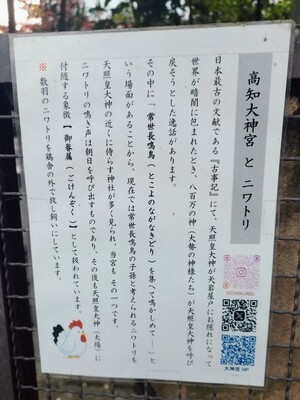 高知大神宮 と ニワトリ
日本最古の文献である『古事記』にて、天照皇大神が天岩屋戸にお隠れになって
世界が暗闇に包まれたとき、八百万の神（大勢の神様たち）が天照皇大神を呼び
戻そうとした逸話があります。
その中に「常世長鳴鳥（とこよのながなきどり）を集めて鳴かしめて―」と
いう場面があることから、現在では常世長鳴鳥の子孫と考えられるニワトリを
天照皇大神の近くに侍らす神社が多く見られ、当宮も その一つです。
ニワトリの鳴き声は朝日を呼び出すものであり、その後も天照皇大神（太陽）に
付随する象徴【御眷属（ごけんぞく）】として扱われています。
※ 数羽のニワトリを鶏舎の外で放し飼いにしています。
大神宮 HP